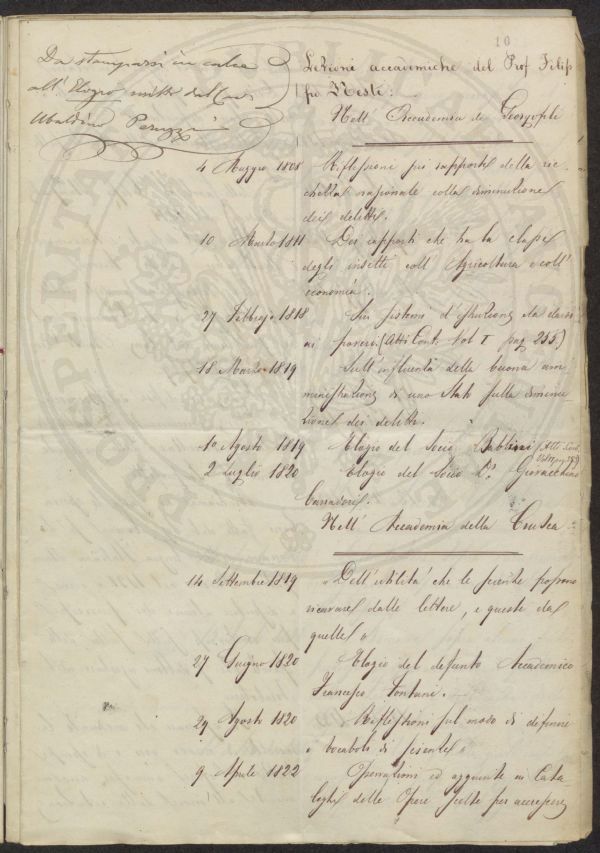 10
Da stamparsi in calce
all' Elogio scritto dal Cav.
Ubaldino Peruzzi
Lezioni accademiche del Prof Filip
po Nesti:
Nell' Accademia de Georgofili
4 Maggio 1808 Riflessioni sui rapporti della ric
chezza nazionale colla diminuzione
dei delitti.
10 Marzo 1811 Dei rapporti che ha la classe
degli insetti coll' Agricoltura e coll'
economia.
27 Febbrajo 1818 Sui sistemi d'istruzione da darsi
ai poveri. (Atti Cont. Vol I pag 255)
18 Marzo 1819 Sull'influenza della buona am
ministrazione di uno Stato sulla diminu
zione dei delitti.
1º Agosto 1819 Elogio del Socio (Atti Cont.
2 Luglio 1820 Elogio del Socio Dr. Giovacchino
Carradori.
Nell' Accademia della Crusca
14 Settembre 1819 "Dell'utilità che le scienze possono
ricavare dalle lettere, e queste da
quelle"
27 Giugno 1820 Elogio del defunto Accademico
Francesco Fontani.
29 Agosto 1820 Riflessioni sul modo di definire
i vocaboli di scienze"
9 Aprile 1822 Operazioni ed aggiunte ai Cata
loghi delle Opere scelte per accrescere